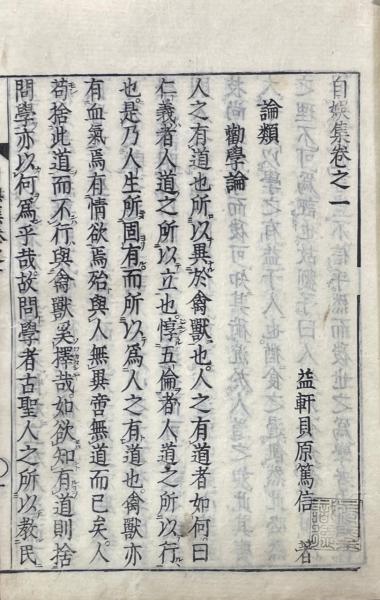 自娯集卷之一
益軒貝原篤信 著
論類
勸學論
人之有道也所以異於禽獸也人之有道者如何曰
仁義者人道之所以立也惇五倫者人道之所以行
也是乃人生所固有而所以爲人之有道也禽獸亦
有血氣焉有情欲焉殆與人無異啻無道而已矣人
苟捨此道而不行與禽獸奚擇哉如欲知有道則捨
問學亦以何爲乎哉故問學者古聖人之所以教民